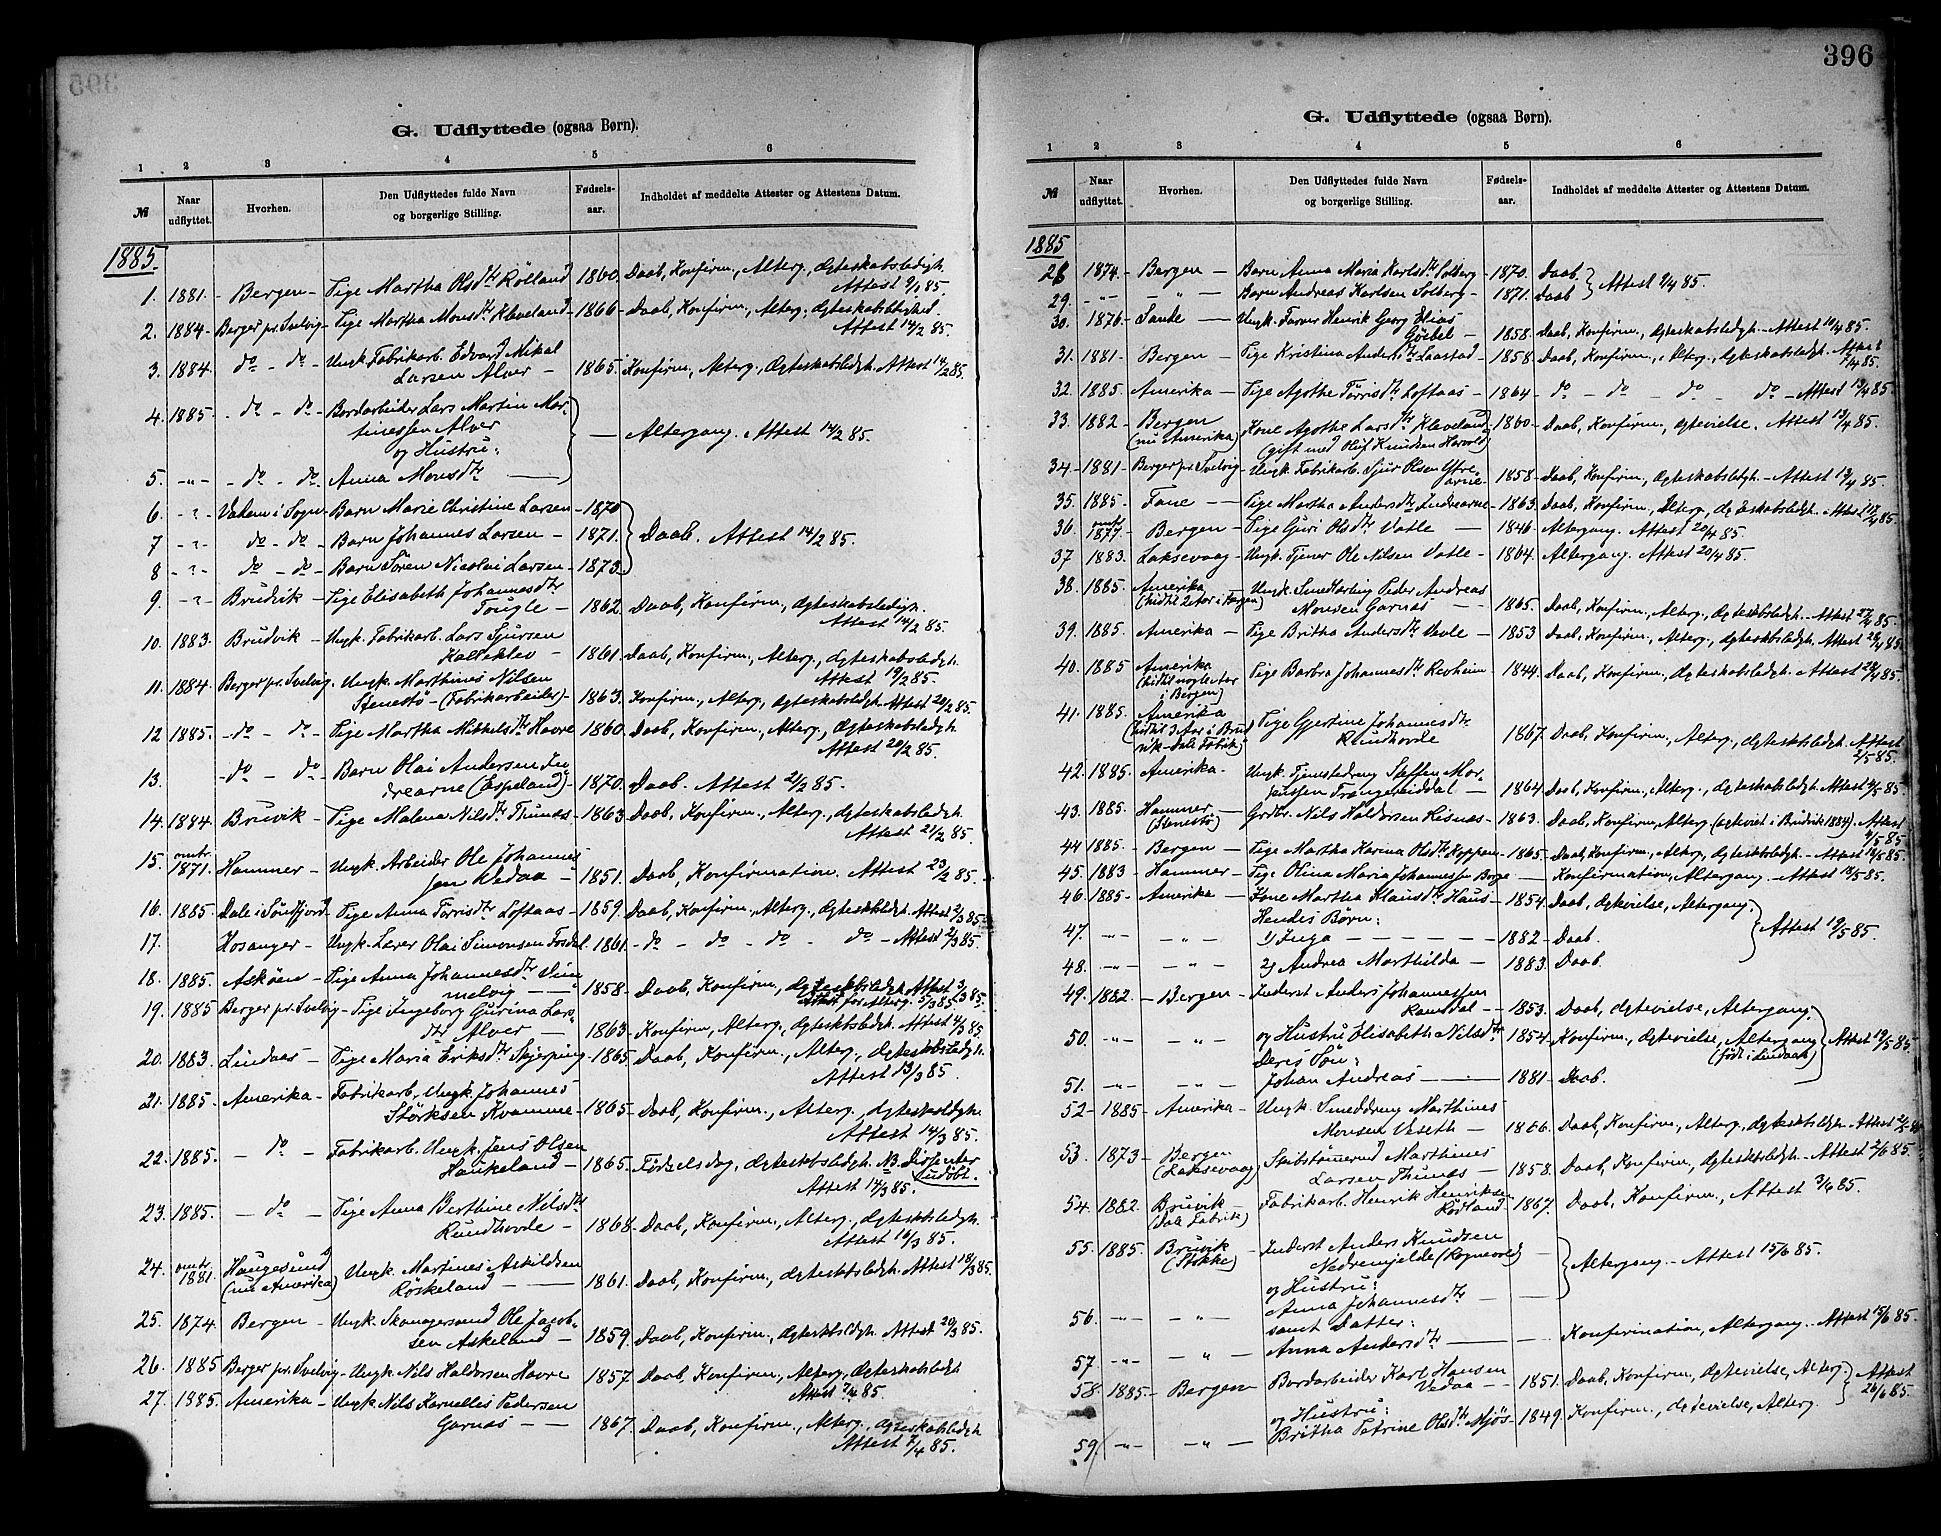 396
G. Udflyttede (ogsaa Børn).
1 2 3 4 5 6
№ Naar udflyttet. Hvorhen. Den Udflyttedes fulde Navn og borgerlige Stilling. Fødsels-aar. Indholdet af meddelte Attester og Attestens Datum.
1885.
1. 1881. - Bergen - Pige Martha Olsdtr Rölland 1860. Daab, Konfirm., Alterg., Ægteskabsledigh.
Attest 9/1 85.
2. 1884 - Berger pr. Svelvig - Pige Martha Monsdtr Kleveland - 1866 - Daab, Konfirm., Alterg., Ægteskabsledighed.
Attest 14/2 85.
3. 1884. do - do - Ungk. Fabrikarb. Edvard Mikal
Larsen Alver - 1865. Konfirm., Alterg., Ægteskabsledigh. Attest 14/2 85.
4. 1885 - do - do - Bordarbeider Lars Martin Mar-
tinessen Alver
og Hustru: - Altergang. Attest 14/2 85.
5. -"- - do - do. Anna Monsdtr
6. - ? - Vadem i Sogn - Barn Marie Christine Larsen - 1870
7. - ? - do - do - Barn Johannes Larsen - 1871. Daab. Attest 14/2 85.
8. - ? - do - do - Barn Sören Nicolai Larsen - 1873.
9. - ? - Brudvik - Pige Elisabeth Johannesdtr
Tougle - 1862. Daab, Konfirm., Ægteskabsledigh.
Attest 14/2 85.
10. 1883. Brudvik - Ungk. Fabrikarb. Lars Sjursen
Halleklev - 1861. Daab, Konfirm., Alterg., Ægteskabsledgh.
Attest 19/2 85.
11. 1884. Berger pr. Svelvig. Ungk. Marthines Nilsen
Stenestö - (Fabrikarbeider) - 1863. Konfirm., Alterg., Ægteskabsledgh. Attest 20/2 85.
12. 1885. - do - do. - Pige Martha Mikkelsdtr Havre 1860. Daab, Konfirm., Alterg., Ægteskabsledgh.
Attest 20/2 85.
13. - do - do - Barn Olai Andersen In-
drearne (Espeland) - 1870. Daab. Attest 21/2 85.
14. 1884. Bruvik - Pige Malena Nilsdtr Thunæs - 1863 Daab, Konfirm., Alterg., Ægteskabsledgh.
Attest 21/2 85.
15. omtr. 1871. Hammer - Ungk. Arbeider Ole Johannes-
sen Vedaa - 1851. Daab, Konfirmation. Attest 23/2 85.
16. 1885 Dale i Söndfjord - Pige Anna Torrisdtr Loftaas - 1859. Daab, Konfirm., Alterg., Ægteskbsledgh. Attest 2/3 85.
17. Hosanger - Ungk. Lærer Olai Simonsen Fosdal 1861. - do - do - do - do - Attest 2/3 85.
18. 1885. Askøen - Pige Anna Johannesdtr
melvig - 1858 - Daab, Konfirm., Ægteskbsledgh. Attest 3/3 85.
Attest for Alterg. 5/3 85.
19. 1885 Berger pr. Svelvig - Pige Ingeborg Gurina Lars-
dtr Alver - 1863 - Konfirm., Alterg., Ægteskbsledgh. Attest 4/3 85
20. 1883. Lindaas - Pige Maria Eriksdtr Skjerping - 1865 - Daab, Konfirm., Alterg., Ægteskbsledgh.
Attest 13/3 85.
21. 1885. Amerika - Fabrikarb. Ungk. Johannes
Störksen Kvamme - 1865 - Daab, Konfirm., Alterg., Ægteskabsledgh.
Attest 14/3 85.
22. 1885. - do - Fabrikarb. Ungk. Jens Olsen
Haukeland - 1865 - Födselsdag, Ægteskabsledgh. NB. Dissenter
Attest 14/3 85. (udöbt.
23. 1885. - do - Pige Anna Berthine Nilsdtr
Rundhovde - 1868 - Daab, Konfirm., Alterg., Ægteskabsledgh.
Attest 16/3 85.
24. omtr. 1881. Haugesund
(nu Amerika) Ungk. Martines Askildsen
Röskeland - 1861. Daab, Konfirm., Alterg., Ægteskbsledgh. Attest 18/3 85.
25. 1874. Bergen - Ungk. Skomagersvend Ole Jacob-
sen Askeland - 1859. Daab, Konfirm., Ægteskbsledgh. Attest 20/3 85.
26. 1885 Berger pr. Svelvig - Ungk. Nils Haldorsen Havre 1857 Daab, Konfirm., Alterg., Ægteskabsledgh.
Attest 7/4 85.
27. 1885. Amerika - Ungk Nils Kornelius Pedersen
Garnæs - 1867. Daab, Konfirm., Alterg., Ægteskabsledgh
Attest 7/4 85.
G. Udflyttede (ogsaa Børn).
1 2 3 4 5 6
№ Naar udflyttet. Hvorhen. Den Udflyttedes fulde Navn og borgerlige Stilling. Fødsels-aar. Indholdet af meddelte Attester og Attestens Datum.
1885
28 1874. - Bergen - Barn Anna Maria Karlsdtr Solberg - 1870. Daab.
29. -"- - " - Barn Andreas Karlsen Solberg - 1871. Daab Attest 9/4 85.
30. 1876 - Sande - Ungk. Farver Henrik Georg Elias
Göebel - 1858. Daab, Konfirm., Ægteskabsledgh. - Attest 10/4 85.
31. 1881 - Bergen - Pige Kristina Andersdtr Laastad - 1858 - Daab, Konfirm., Alterg., Ægteskabsledgh. Attest 7/4 85.
32. 1885. Amerika - Pige Agathe Törrisdtr Loftaas - 1864 - do - do - do - do - Attest 13/4 85.
33. 1882 - Bergen
(nu Amerika) Kone Agathe Larsdtr Kleveland
(gift med Oluf Knudsen Harvold) 1860 - Daab, Konfirm., Ægtevielse. Attest 13/4 85.
34 - 1881 - Berger pr. Svelvig - Ungk. Fabrikarb. Sjur Olsen Ytre
Arne - 1858 - Daab, Konfirm., Ægteskabsledgh. - Attest 17/4 85.
35. 1885 - Fane - Pige Martha Andersdtr Indrearne - 1863. Daab, Konfirm., Alterg., Ægteskabsledgh. Attest 17/4 85.
36. omtr. 1877. - Bergen - Pige Guri Olsdtr Vatle - 1846 - Altergang. Attest 20/4 85.
37 1883. Laksevaag - Ungk. Tjener Ole Nilsen Vatle - 1864 - Altergang. Attest 20/4 85.
38. 1885. Amerika
(hidtil 2 Aar i Bergen) Ungk. Smedlærling Peder Andreas
Monsen Garnæs - 1865. Daab, Konfirm., Alterg., Ægteskbsledgh. - Attest 27/4 85.
39. 1885. Amerika - Pige Britha Andersdtr Vevle - 1853 Daab, Konfirm., Alterg., Ægteskbsledgh. Attest 28/4 85
40. 1885 Amerika
(hidtil nogle Aar
i Bergen) Pige Barbra Johannesdtr Revheim - 1844. Daab, Konfirm., Ægteskbsledgh. - Attest 28/4 85.
41. 1885. Amerika
(hidtil 3 Aar i Brud-
vik - Dale Fabrik) Pige Gjertine Johannesdtr
Rundhovde 1867. Daab, Konfirm., Alterg., Ægteskbsledgh. Attest 2/5 85.
42. 1885. Amerika - Ungk. Tjenstedreng Steffen Mor-
tensen Trængereiddal - 1864 Daab, Konfirm., Alterg., Ægteskbsledgh. Attest 4/5 85.
43. 1885. Hammer -
(Stenestö) Grdbr. Nils Haldorsen Risnæs - 1863. Daab, Konfirm., Alterg. (Ægteviet i Brudvik 1884). Attest 4/5 85
44 1885. - Bergen - Pige Martha Karina Olsdtr Koppen - 1865. Daab, Konfirm., Alterg., Ægteskbsledgh. - Attest 12/5 85.
45. 1883 - Hammer - Pige Olina Maria Johannessen Borge - Konfirmation, Altergang. - Attest 13/5 85.
46. 1885 - Amerika - Kone Martha Klausdtr Haus - 1854. Daab, Ægtevielse, Altergang.
Hendes Börn:
47. -"- - " - 1) Inga - 1882 - Daab. Attest 19/5 85.
48. -"- - " - 2) Andrea Marthilda - 1883. Daab.
49. 1882 - Bergen - Inderst Anders Johannessen
Ramsdal - 1853. Daab, Ægtevielse, Altergang.
50. -"- - " - og Hustru Elisabeth Nilsdtr 1854. Konfirm., Ægtevielse, Altergang Attest 19/5 85.
(födt i Lindaas)
Deres Sön:
51. -"- - " - Johan Andreas - 1881 - Daab.
52 - 1885 - Amerika - Ungk. Smeddreng Marthines
Monsen Veseth - 1866 - Daab, Konfirm., Alterg., Ægteskbsledgh. - Attest
53. 1873 - Bergen
(Laksevaag) Skibstömrmd Marthines
Larsen Thunæs - 1858. Daab, Konfirm., Ægteskbsledgh. - Attest 2/6 85.
54. 1882. Bruvik
(Dale Fabrik) Fabrikarb. Henrik Henriksen
Rödland 1867. Daab, Konfirm., Attest 3/6 85.
55. 1885. Bruvik
(Stokke) Inderst Anders Knudsen
Nedremjelde (Rognevold)
og Hustru: Altergang. - Attest 15/6 85.
56. -"- - " - Anna Johannesdtr
samt Datter:
57. -"- - " - Anna Andersdtr - Konfirmation, Altergang. - Attest 15/6 85.
58. 1885 - Bergen Bordarbeider Karl Hansen
Vedaa - 1851. Daab, Konfirm., Ægtevielse, Alterg. Attest 26/6 85.
og Hustru:
59. -"- - " - Britha Petrine Olsdtr Mjös - 1849 - Konfirm., Ægtevielse, Alterg.